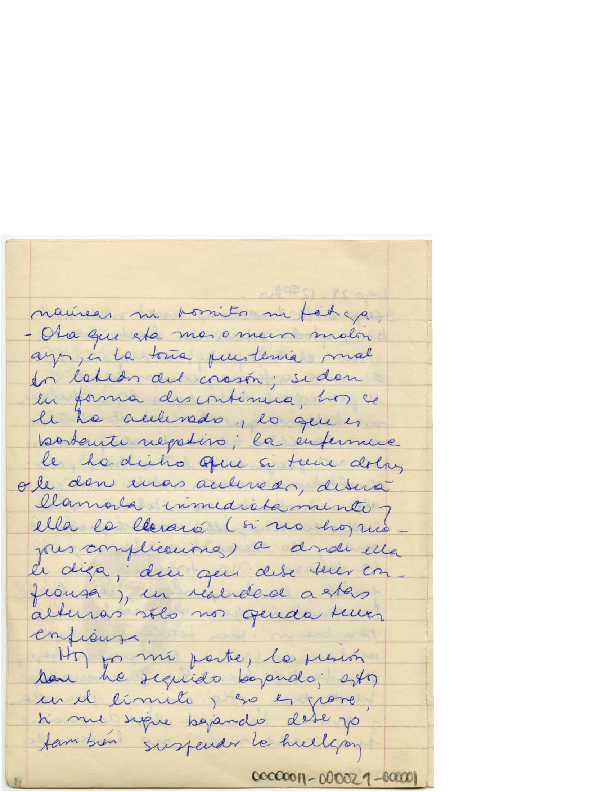 naúseas ni vomitos ni fatiga.
- Otra que esta mas o menos
ayer, es la toña pues tenia mal
los latidos del corazón, se dan
en forma discontinua, hoy se
le ha acelerado, lo que es
bastante negativo; la enfermera
le ha dicho que si tiene dolores
o le dan mas acelerado, deberá
llamarla inmediatamente y
ella la llevará (si no hoy ma-
yores complicaciones) a donde ella
le diga; dice que debe tener con-
fianza), en realidad a estas
alturas sólo nos queda tener
confianza.
Hoy por mi parte, la presión
ha seguido bajando; estoy
en el límite, eso es grave,
si me sigue bajando debe yo
también suspender la huelga y
00000011-000029-000001